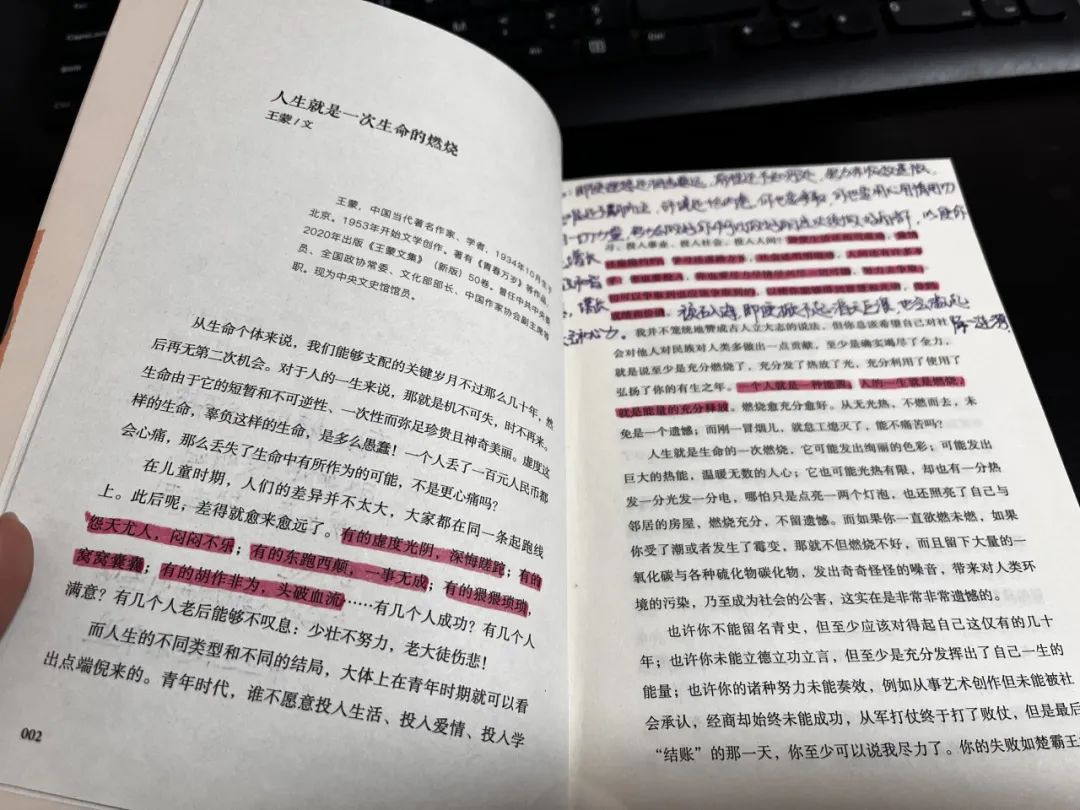 人生就是一次生命的燃烧
王蒙/文
王蒙，中国当代著名作家、学者，1934年10月生于
北京。1953年开始文学创作。著有《青春万岁》等作品，
2020年出版《王蒙文集》（新版）50卷。曾任中共中央委
员、全国政协常委、文化部部长、中国作家协会副主席等
职。现为中央文史馆馆员。
从生命个体来说，我们能够支配的关键岁月不过那么几十年，然
后再无第二次机会。对于人的一生来说，那就是机不可失，时不再来。
生命由于它的短暂和不可逆性、一次性而弥足珍贵且神奇美丽。虚度这
样的生命，辜负这样的生命，是多么愚蠢！一个人丢了一百元人民币都
会心痛，那么丢失了生命中有所作为的可能，不是更心痛吗？
在儿童时期，人们的差异并不太大，大家都在同一条起跑线
上。此后呢，差得就愈来愈远了。有的虚度光阴，深悔蹉跎；有的
怨天尤人，闷闷不乐；有的东跑西颠，一事无成；有的猥猥琐琐，
窝窝囊囊；有的胡作非为，头破血流……有几个人成功？有几个人
满意？有几个人老后能够不叹息：少壮不努力，老大徒伤悲！
而人生的不同类型和不同的结局，大体上在青年时期就可以看
出点端倪来的。青年时代，谁不愿意投入生活、投入爱情、投入学
002
习、投入事业、投入社会、投入人间？
我并不笼统地赞成古人立大志的说法，但你总该希望自己对社
会对他人对民族对人类多做出一点贡献，至少是确实竭尽了全力，
就是说至少是充分燃烧了，充分发了热放了光，充分利用了使用了
弘扬了你的有生之年。一个人就是一种能源，人的一生就是燃烧，
就是能量的充分释放。燃烧愈充分愈好。从无光热，不燃而去，未
免是一个遗憾；而刚一冒烟儿，就怠工熄灭了，能不痛苦吗？
人生就是生命的一次燃烧，它可能发出绚丽的色彩；可能发出
巨大的热能，温暖无数的人心；它也可能光热有限，却也有一分热
发一分光发一分电，哪怕只是点亮一两个灯泡，也还照亮了自己与
邻居的房屋，燃烧充分，不留遗憾。而如果你一直欲燃未燃，如果
你受了潮或者发生了霉变，那就不但燃烧不好，而且留下大量的一
氧化碳与各种硫化物碳化物，发出奇奇怪怪的噪音，带来对人类环
境的污染，乃至成为社会的公害，这实在是非常非常遗憾的。
也许你不能留名青史，但至少应该对得起自己这仅有的几十
年；也许你未能立德立功立言，但至少是充分发挥出了自己一生的
能量；也许你的诸种努力未能奏效，例如从事艺术创作但未能被社
会承认，经商却始终未能成功，从军打仗终于打了败仗，但是最后
“结账”的那一天，你至少可以说我尽力了。你的失败如楚霸王